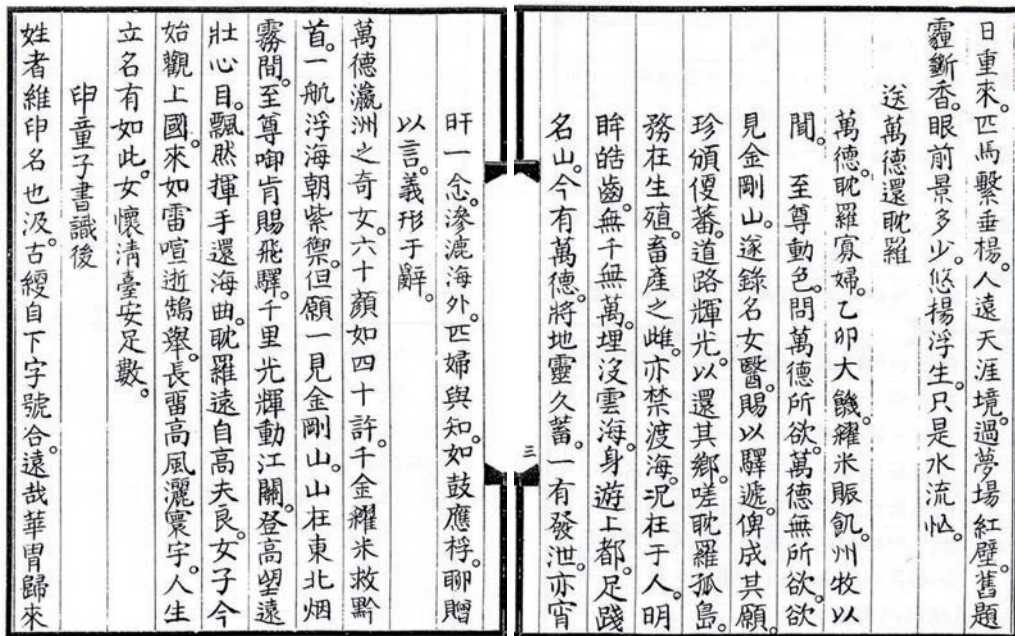 日重來。匹馬繫垂楊。人遠天涯境。過夢場紅壁舊題
霾斷香。眼前景多少。悠揚浮生。只是水流忙。
送萬德還耽羅
萬德。耽羅寡婦。乙卯大饑。糴米賑飢。州牧以
聞。 至尊動色。問萬德所欲。萬德無所欲。欲
見金剛山。遂錄名女醫。賜以驛遞。俾成其願。
珍頒優蕃。道路輝光。以還其鄉。嗟耽羅孤島。
務在生殖。畜產之雌。亦禁渡海。况在于人。明
眸皓齒。無千無萬。埋沒雲海。身遊上都。足踐
名山。今有萬德。將地靈久蓄。一有發泄。亦宵
三
旰一念。滲漉海外。匹婦與知。如鼓應桴。聊贈
以言。義形于辭。
萬德瀛洲之奇女。六十顏如四十許。千金糴米救黔
首。一航浮海朝紫禦。但願一見金剛山。山在東北烟
霧間。至尊啣肯賜飛驛。千里光輝動江關。登高望遠
壯心目。飄然揮手還海曲。耽羅遠自高夫良。女子今
始觀上國。來如雷喧逝鵠舉。長留高風灑寰宇。人生
立名有如此。女懷清臺安足數。
印童子書識後
姓者維印名也汲。古綆自下字號合。遠哉華胄歸來